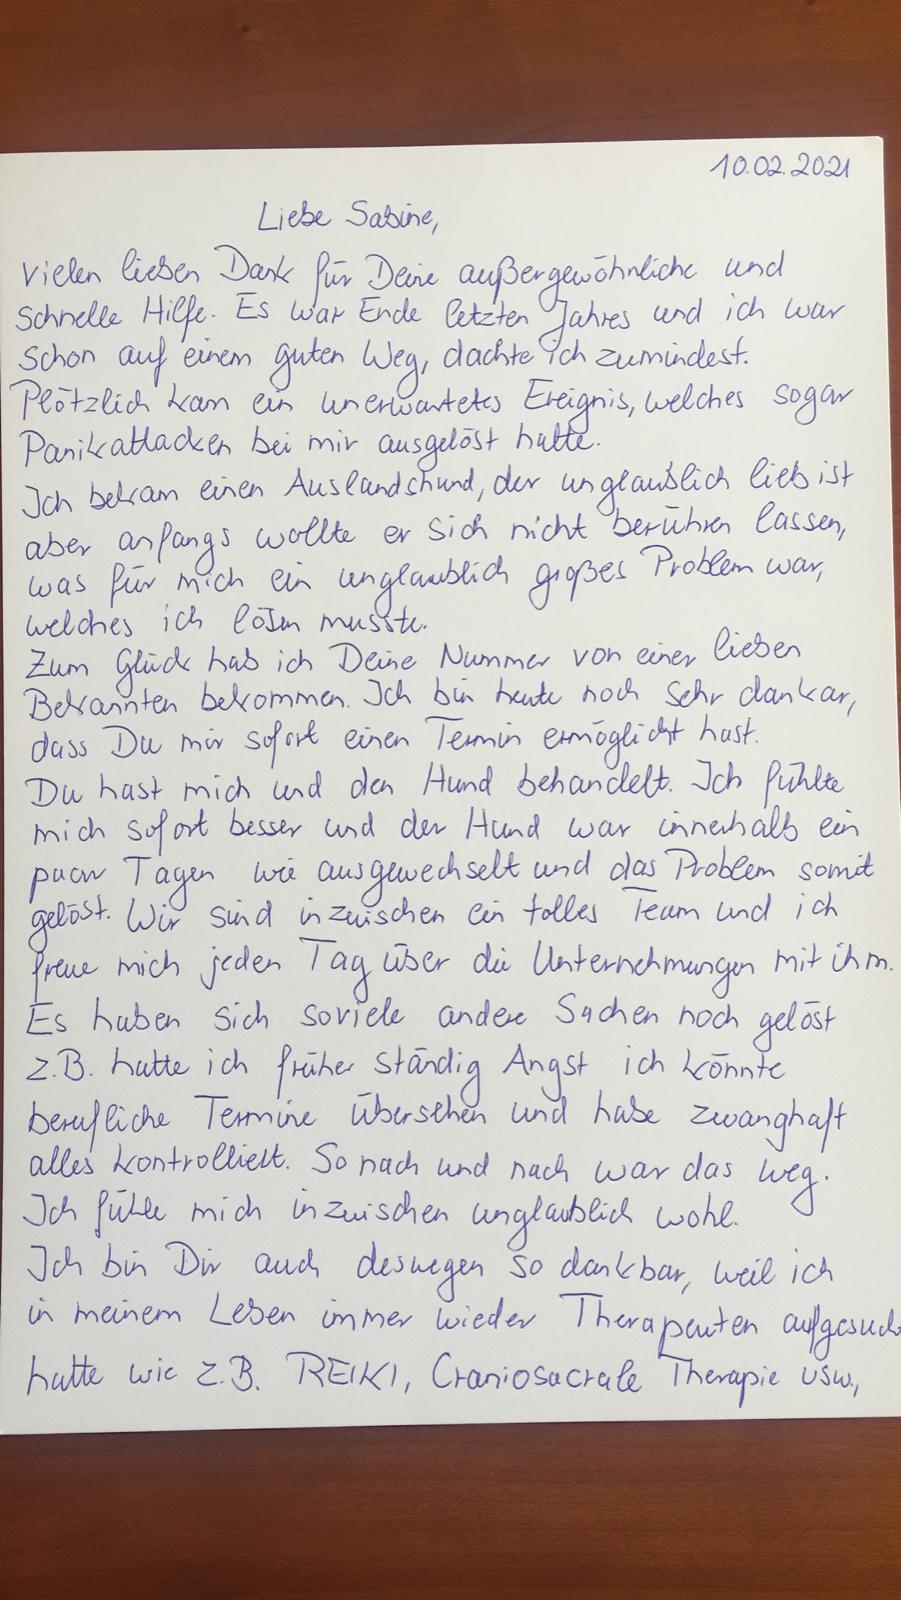 10.02.2021
Liebe Sabine,
vielen lieben Dank für Deine außergewöhnliche und
schnelle Hilfe. Es war Ende letzten Jahres und ich war
schon auf einem guten Weg, dachte ich zumindest.
Plötzlich kam ein unerwartetes Ereignis, welches sogar
Panikattacken bei mir ausgelöst hatte.
Ich bekam einen Auslandshund, der unglaublich lieb ist
aber anfangs wollte er sich nicht berühren lassen,
was für mich ein unglaublich großes Problem war,
welches ich lösen musste.
Zum Glück hab ich Deine Nummer von einer lieben
Bekannten bekommen. Ich bin heute noch sehr dankar,
dass Du mir sofort einen Termin ermöglicht hast.
Du hast mich und den Hund behandelt. Ich fühlte
mich sofort besser und der Hund war innerhalb ein
paar Tagen wie ausgewechselt und das Problem somit
gelöst. Wir sind inzwischen ein tolles Team und ich
freue mich jeden Tag über die Unternehmungen mit ihm.
Es haben sich soviele andere Sachen noch gelöst
z.B. hatte ich früher ständig Angst ich könnte
berufliche Termine übersehen und habe zwanghaft
alles kontrolliert. So nach und nach war das weg.
Ich fühle mich inzwischen unglaublich wohl.
Ich bin Dir auch deswegen so dankbar, weil ich
in meinem Leben immer wieder Therapeuten aufgesucht
hatte wie z.B. REIKI, Craniosacrale Therapie usw.,